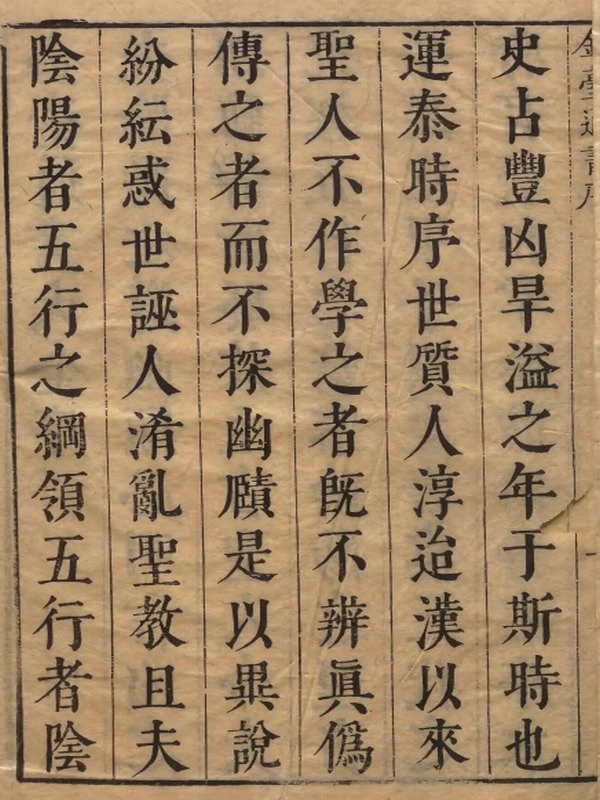 通書序
史占豐凶旱溢之年于斯時也
運泰時序世質人淳迨漢以來
聖人不作學之者既不辨眞僞
傳之者而不探幽賾是以異說
紛紜惑世誣人淆亂聖教且夫
陰陽者五行之綱領五行者陰